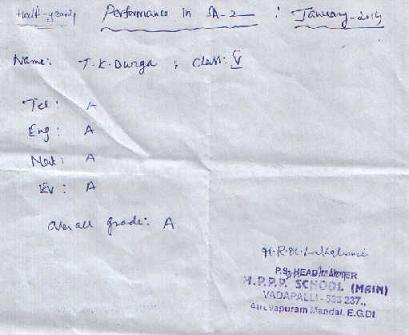 Half-yearly Performance in SA-2 : January-2014
Name: T.K.Durga ; Class: V
Tel: A
Eng: A
Mat: A
Ev: A
Over all grade: A
HEAD MASTER
M.P.P.P. SCHOOL (MAIN)
VADAPALLI - 533 237.,
Atreyapuram Mandal, E.G.Dt